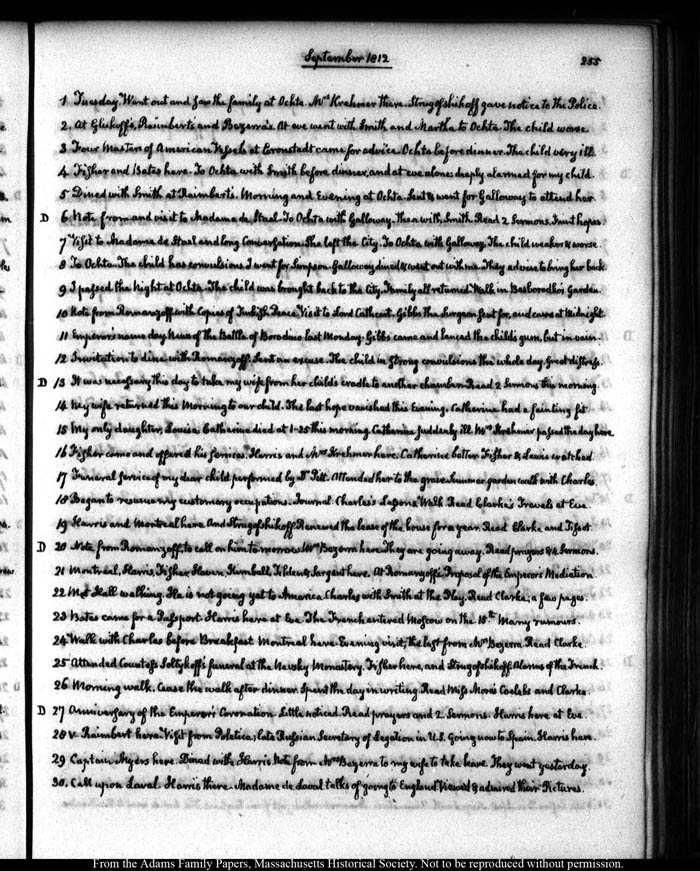 September 1812
255
1 Tuesday. Went out and saw the family at Ochta. Mrs Krehmer there. Strugofshikoff gave notice to the Police.
2. At Glukoff's, Raimbert's and Bezerra's. At eve went with Smith and Martha to Ochta. The child worse
3 Four Masters of American Vessels at Cronstadt came for advice. Ochta before dinner. The child very ill
4. Fisher and Bates here. To Ochta with Smith before dinner, and at eve alone: deeply alarmed for my child.
5 Dined with Smith at Raimbert's. Morning and Evening at Ochta. Sent & went for Galloway to attend her
D 6 Note from and visit to Madame de Stael. To Ochta with Galloway. Then with Smith. Read 2 Sermons. Faint hopes.
7 Visit to Madame de Stael and long Conversation. She left the City. To Ochta with Galloway. The child weaker & worse.
8 To Ochta. The child has convulsions. I went for Simpson. Galloway dined & went out with me. They advise to bring her back
9 I passed the Night at Ochta. The child was brought back to the City. Family all returned. Walk in Besborodko's Garden.
10 Note from Romanzoff with Copies of Turkish Peace. Visit to Lord Cathcart. Gibbs the Surgeon sent for, and came at Midnight.
11 Emperor's name day. News of the Battle of Borodino last Monday. Gibbs came and lanced the child's gum, but in vain.
12 Invitation to dine with Romanzoff. Sent an excuse. The child in strong convulsions the whole day. Great distress.
D 13 It was necessary this day to take my wife from her child's cradle to another chamber. Read 2 Sermons this morning.
14 My wife returned this Morning to our child. The last hope vanished this Evening. Catherine had a fainting fit
15 My only daughter, Louisa Catherine died at 1-25 this morning. Catherine suddenly ill. Mrs Krehmer passed the day here
16 Fisher came and offered his services. Harris and Mrs Krehmer here. Catherine better. Fisher & Lewis watched.
17 Funeral service of my dear child performed by Dr Pitt. Attended her to the grave. Summer garden walk with Charles.
18 Began to resume my customary occupations. Journal. Charles's Lessons. Walk. Read Clarke's Travels at Eve.
19 Harris and Montreal here. And Strugofshikoff. Renewed the lease of the house for a year. Read Clarke and Tissot.
D 20 Note from Romanzoff, to call on him tomorrow. Mrs Bezerra here. They are going away. Read prayers & 2 Sermons.
21 Montreal, Harris, Fisher, Haven, Kimball, Tilden & Sargent here. At Romanzoff's. Proposal of the Emperor's Mediation.
22 Met Hall walking. He is not going yet to America. Charles with Smith at the Play. Read Clarke; a few pages.
23 Bates came for a Passport. Harris here at Eve. The French entered Moscow on the 15th. Many rumours.
24 Walk with Charles before Breakfast. Montreal here. Evening visit; the last from Mrs Bezerra. Read Clarke.
25 Attended Countess Soltykoff's funeral at the Nevsky Monastery. Fisher here, and Strugofshikoff. Alarms of the French.
26 Morning walk. Cease the walk after dinner. Spent the day in writing. Read Miss More's Coelebs and Clarke.
D 27 Anniversary of the Emperor's Coronation. Little noticed. Read prayers and 2 Sermons. Harris here at Eve.
28 v. Raimbert here. Visit from Poletica; late Russian Secretary of Legation in U.S. Going now to Spain. Harris here.
29 Captain Myers here. Dined with Harris. Note from Mrs Bezerra to my wife to take leave. They went yesterday.
30. Call upon Laval. Harris there. Madame de Laval talks of going to England. Viewed & admired their Pictures.
From the Adams Family Papers, Massachusetts Historical Society. Not to be reproduced without permission.